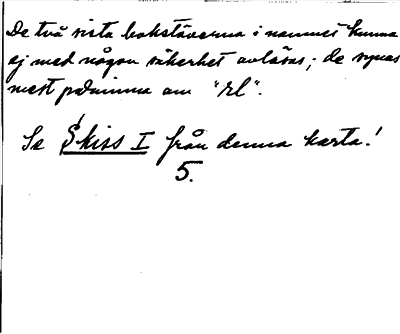 De två sista bokstäverna i namnet kunna
ej med någon säkerhet avläsas; de synas
mest påminna om "rl".
Se Skiss I från denna karta!
5.